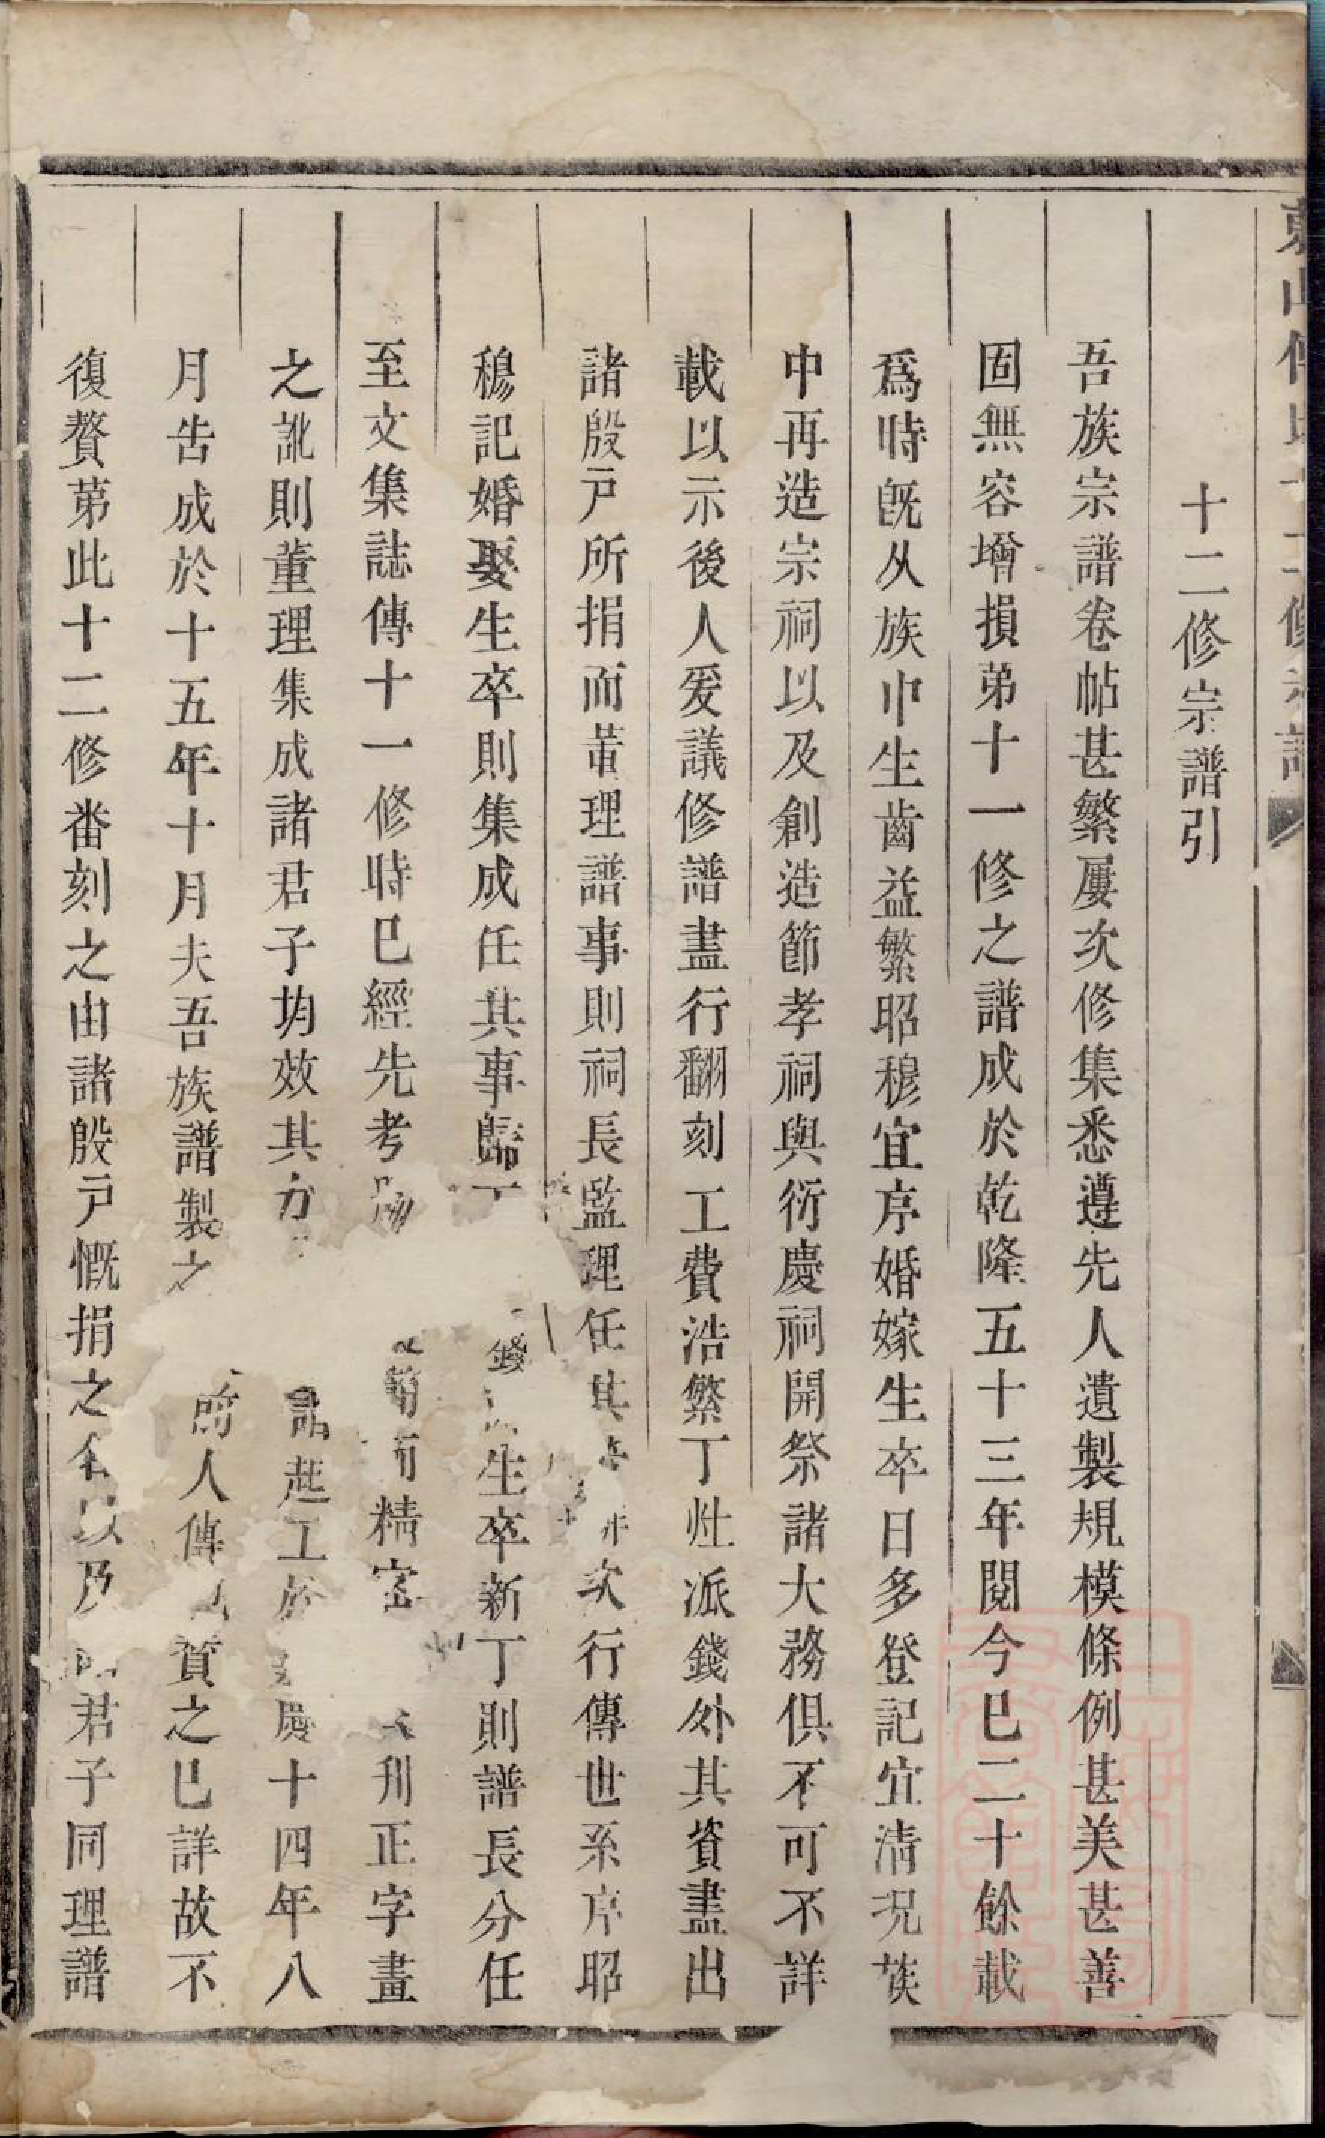 十二修宗譜引
吾族宗譜卷帖甚繁屢次修集悉遵先人遺製規模條例甚美甚善
固無容增損苐十一修之譜成於乾隆五十三年閱今已二十餘載
爲時旣从族中生齒益繁昭穆宜序婚嫁生卒日多登記宜清況族
中再造宗祠以及創造節孝祠與衍慶祠開祭諸大務俱不可不詳
載以示後人爰議修譜盡行翻刻工費浩繁丁灶派錢外其資盡出
諸殷户所捐而董理譜事則祠長監理任其 次行傳世系序昭
穆記婚娶生卒則集成任其事歸 錢 生卒新丁則譜長分任
至文集誌傳十一修時已經先考 而精密 刋正字畫
之訛則董理集成諸君子均效其力 起工於 慶十四年八
月告成於十五年十月夫吾族譜製之 前人傳 贊之已詳故不
復贅苐此十二修畨刻之由諸殷户慨捐之名以及 君子同理譜